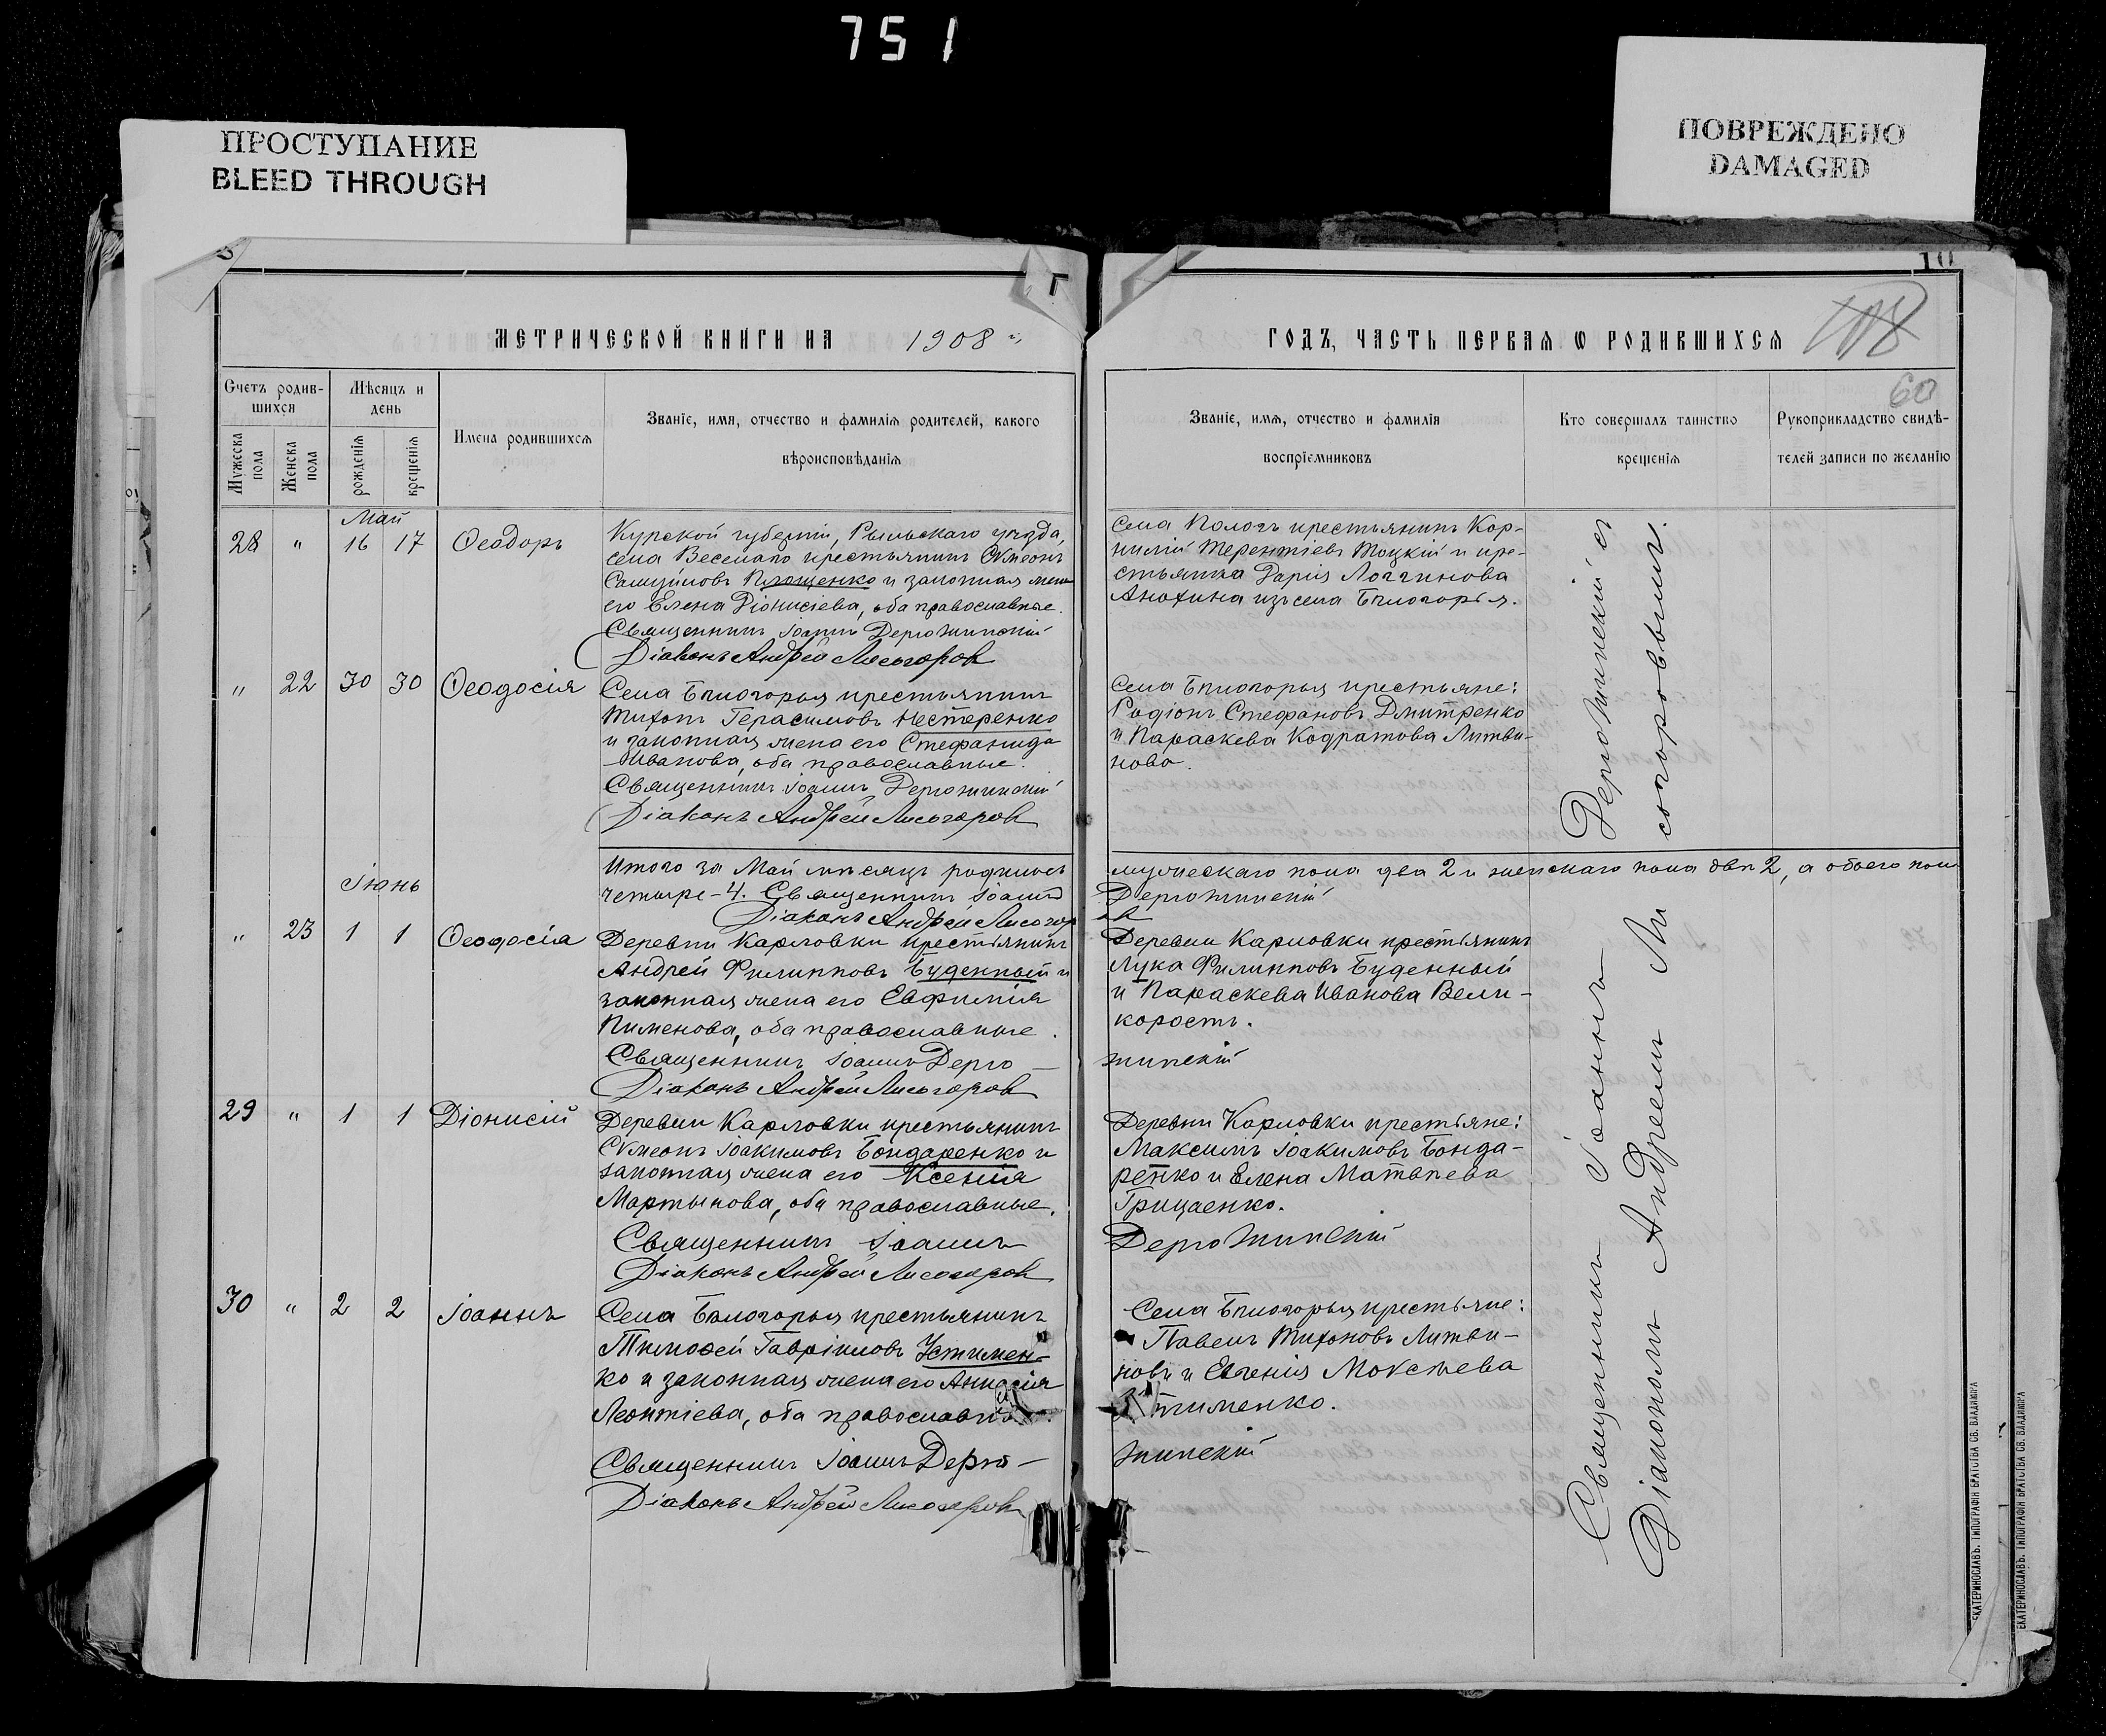 751
ПРОСТУПАНИЕ
BLEED THROUGH
ПОВРЕЖДЕНО
DAMAGED
МЕТРИЧЕСКОЙ КНИГИ НА 1908 г.
Счетъ родив-
шихся
Мужеска пола
Женска пола
Мѣсяцъ и
день
рожденія
крещенія
Имена родившихся
Званіе, имя, отчество и фамилія родителей, какого
вѣроисповѣданія
Май
28 " 16 17 Ѳеодоръ
Курской губерніи, Рыльскаго уѣзда,
села Веселаго крестьянинъ Сѵмеонъ
Самуйловъ Площенко и законная жена
его Елена Діонисіева, оба православные.
Священникъ Іоаннъ Держинскій
Діаконъ Андрей Лисогоров
" 22 30 30 Ѳеодосія
Села Бѣлогорья крестьянинъ
Тихонъ Герасимовъ Нестеренко
и законная жена его Стефанида
Иванова, оба православные.
Священникъ Іоаннъ
Діаконъ Андрей Лисогоров
Итого за Май мѣсяцъ родилось
Іюнь
четыре - 4. Священникъ Іоаннъ
Діаконъ Андрей Лисогор
" 23 1 1 Ѳеодосія
Деревни Карловки крестьянинъ
Андрей Филипповъ Буденный и
законная жена его Евфимія
Пименова, оба православные.
Священникъ Іоаннъ
Діаконъ Андрей Лисогоров
29 " 1 1 Діонисій
Деревни Карловки крестьянинъ
Сѵмеонъ Іоакимовъ Бондаренко и
законная жена его Ксенія
Мартынова, оба православные.
Священникъ Іоаннъ
Діаконъ Андрей Лисогоров
30 " 2 2 Іоаннъ
Села Бѣлогорья крестьянинъ
Тимоѳей Гавріиловъ Устимен-
ко и законная жена его
Леонтіева, оба
Священникъ Іоаннъ
Діаконъ Андрей Лисогоров
10
108
60
ГОДЪ, ЧАСТЬ ПЕРВАЯ Ѡ РОДИВШИХСЯ
Званіе, имя, отчество и фамилія
воспріемниковъ
Кто совершалъ таинство
крещенія
Рукоприкладство свидѣ-
телей записи по желанію
Села Пологъ крестьянинъ Кор-
нилій Терентіевъ Тоцкій и кре-
стьянка Дарія Логгинова
Анохина изъ села Бѣлогорья.
Села Бѣлогорья крестьяне:
Родіонъ Стефановъ Дмитренко
и Параскева Кодратова Литви-
нова.
мужескаго пола два 2 и женскаго пола двѣ 2, а обоего пола
Деревни Карловки крестьянинъ
Лука Филипповъ Буденный
и Параскева Иванова Вели-
корость.
Деревни Карловки крестьяне:
Максимъ Іоакимовъ Бонда-
ренко и Елена Матвѣева
Грицаенко.
Села Бѣлогорья крестьяне:
Павелъ Тихоновъ Литви-
новъ и Евгенія Моксѣева
Священникъ Іоаннъ
Діакономъ Андреемъ Ли
согоровымъ.
ЕКАТЕРИНОСЛАВЪ. ТИПОГРАФІЯ БРАТСТВА СВ. ВЛАДИМІРА
ЕКАТЕРИНОСЛАВЪ. ТИПОГРАФІЯ БРАТСТВА СВ. ВЛАДИМІРА